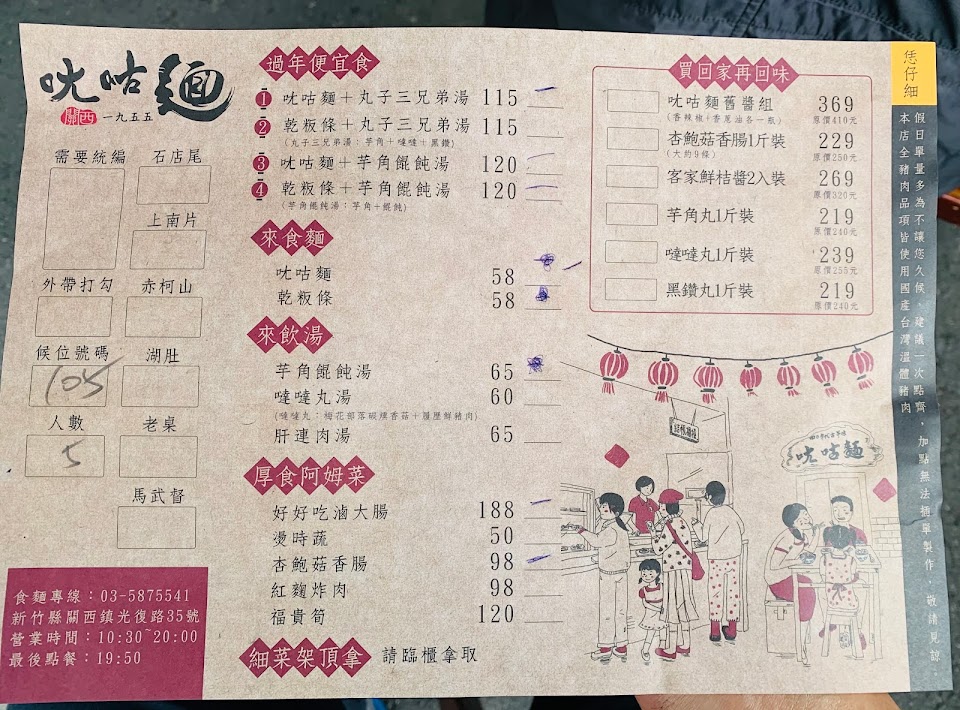 㕭咕麵
關西 一九五五
需要統編 石店尾
上南片
外帶打勾 赤柯山
候位號碼 湖肚
105
人數 老桌
5
馬武督
食麵專線：03-5875541
新竹縣關西鎮光復路35號
營業時間：10:30~20:00
最後點餐：19:50
過年便宜食
1 㕭咕麵＋丸子三兄弟湯 115
2 乾粄條＋丸子三兄弟湯 115
(丸子三兄弟湯：芋角＋噠噠＋黑鑽)
3 㕭咕麵＋芋角餛飩湯 120
4 乾粄條＋芋角餛飩湯 120
(芋角餛飩湯：芋角＋餛飩)
來食麵
㕭咕麵 58
乾粄條 58
來飲湯
芋角餛飩湯 65
噠噠丸湯 60
(噠噠丸：梅花部落碳燻香菇＋履歷鮮豬肉)
肝連肉湯 65
厚食阿姆菜
好好吃滷大腸 188
燙時蔬 50
杏鮑菇香腸 98
紅麴炸肉 98
福貴筍 120
細菜架頂拿 請臨櫃拿取
買回家再回味
㕭咕麵舊醬組 369
(香辣椒+香蔥油各一瓶) 原價410元
杏鮑菇香腸1斤裝 229
(大約9條) 原價250元
客家鮮桔醬2入裝 269
原價320元
芋角丸1斤裝 219
原價240元
噠噠丸1斤裝 239
原價255元
黑鑽丸1斤裝 219
原價240元
㕭咕麵
恁仔細
假日單量多為不讓您久候，建議一次點齊，加點無法插單製作，敬請見諒。
本店全豬肉品項皆使用國產台灣溫體豬肉